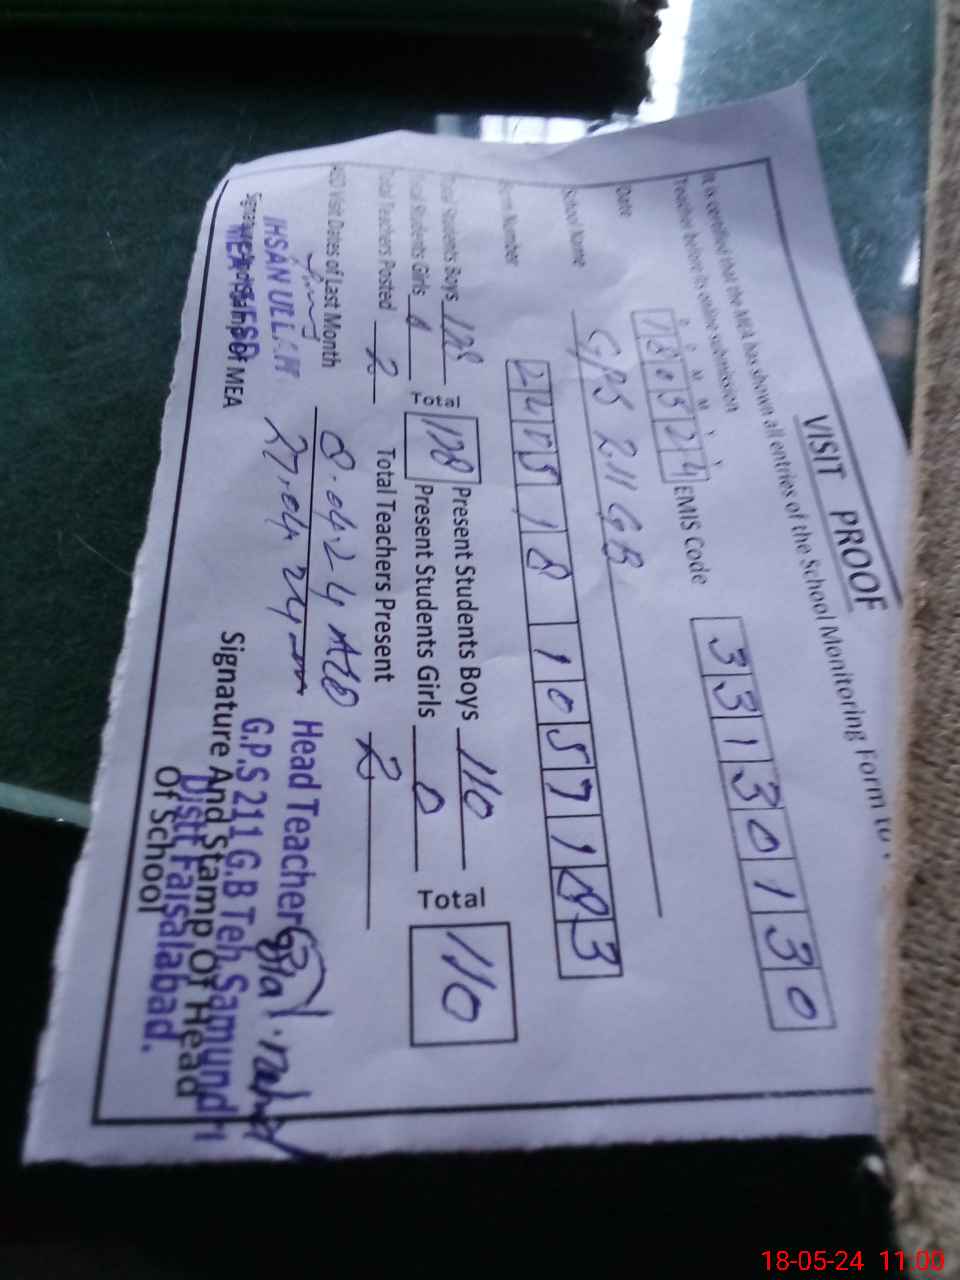 VISIT PROOF
It is certified that the MEA has shown all entries of the School Monitoring Form to
Teacher before its online submission
D D M M Y Y
Date 180524 EMIS Code 33130130
School Name GPS 211 GB
Form Number 240518105718 3
Total Students Boys 128 Present Students Boys 110
Total 128 Total 110
Total Students Girls 0 Present Students Girls 0
Total Teachers Posted 2 Total Teachers Present 2
AEO Visit Dates of Last Month 8.04.24 AEO
27.04.24
IHSAN ULLAH
MEA FSD
Signature And Stamp Of MEA
Head Teacher
G.P.S 211 G.B Teh Samundri
Distt Faisalabad.
Signature And Stamp Of Head
Of School
18-05-24 11:00